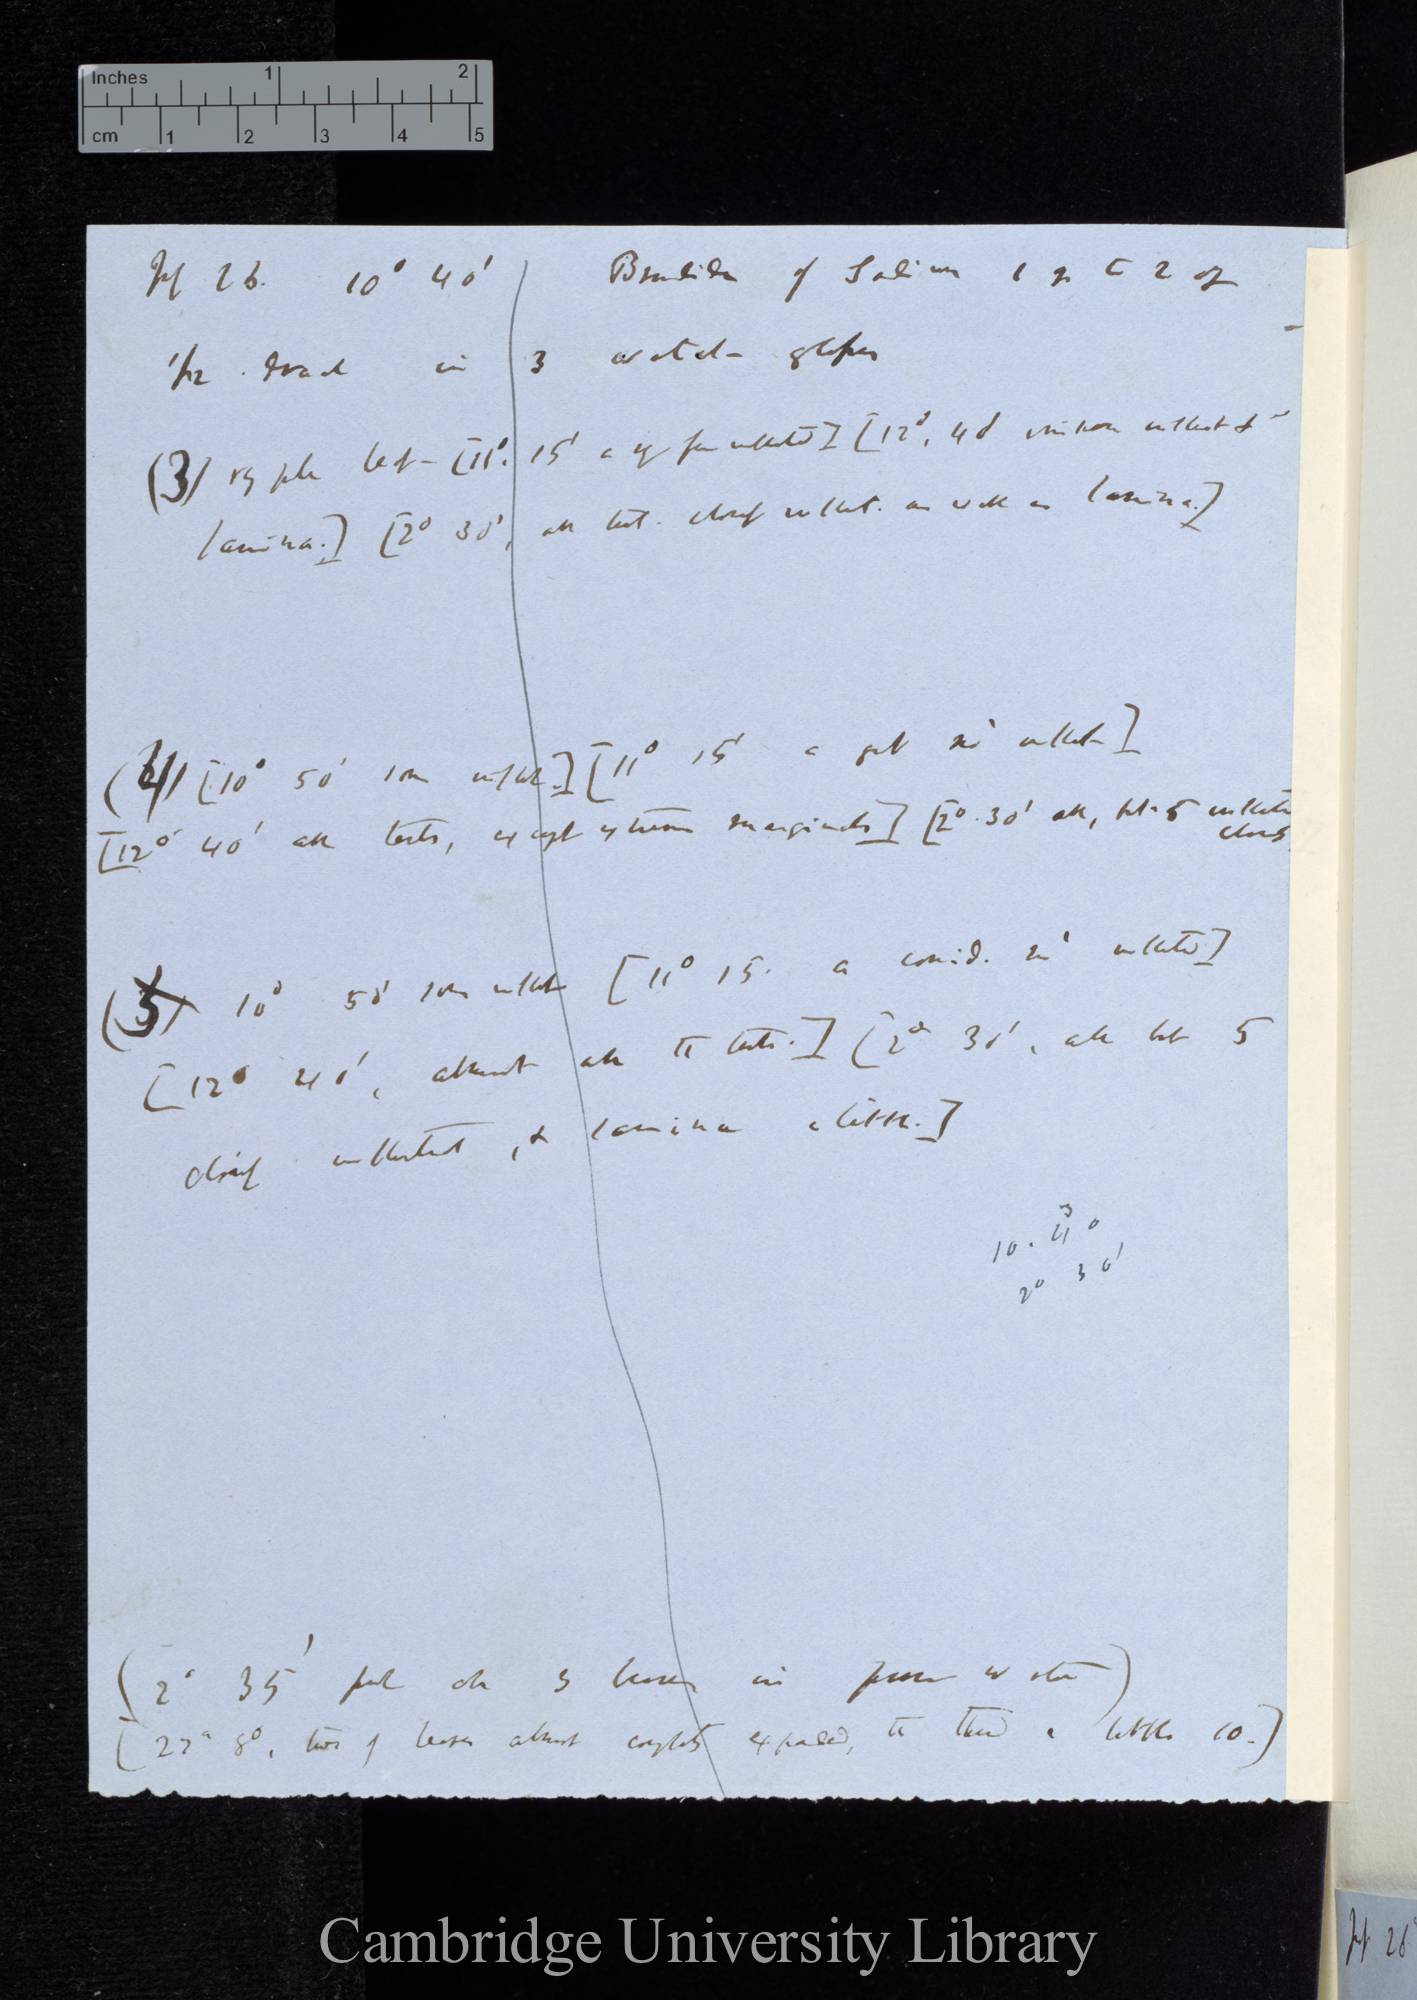 Inches 1 2
cm 1 2 3 4 5
26. 10° 40' Bromide of Sodium 1 gr 2 oz
1/2 drach in 3 watch-glasses
(3) leaf- [11°. 15' a inflected] [12°. 40' inflect &
lamina.] [2° 30', all tent. closely inflect. as well as lamina.]
(4) [10° 50' some inflect.] [11° 15' a good inflect-]
[12° 40' all tents, except extreme marginals] [2° 30' all, but 5 inflected
closely
(5) 10° 50' some inflect [11° 15. a consid. inflected]
[12° 40', almost all tents.] [2° 30', all but 5
closely inflected, & lamina a little.]
10. 40
3
2° 30'
(2° 35' put all 3 leaves in pure water)
[27° 8°, two of leaves almost completely expanded, the third a little so.]
26
Cambridge University Library